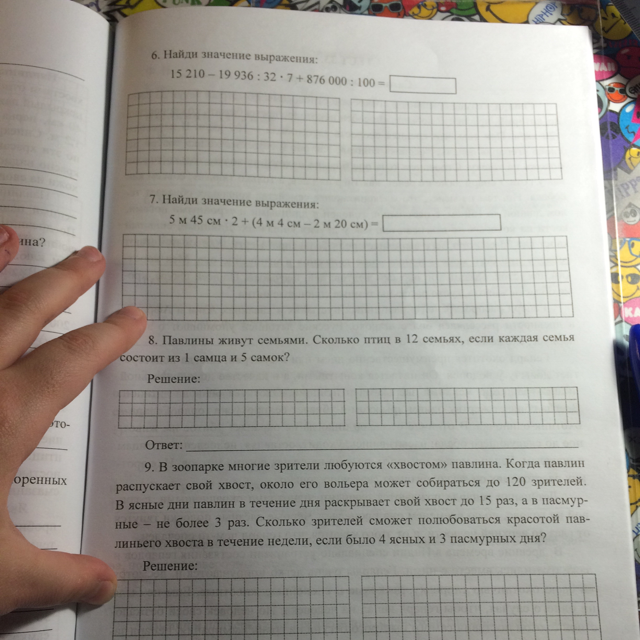 6. Найди значение выражения:
15 210 – 19 936 : 32 · 7 + 876 000 : 100 =
7. Найди значение выражения:
5 м 45 см · 2 + (4 м 4 см – 2 м 20 см) =
ина?
8. Павлины живут семьями. Сколько птиц в 12 семьях, если каждая семья
состоит из 1 самца и 5 самок?
Решение:
это-
Ответ:
9. В зоопарке многие зрители любуются «хвостом» павлина. Когда павлин
оренных
распускает свой хвост, около его вольера может собираться до 120 зрителей.
В ясные дни павлин в течение дня раскрывает свой хвост до 15 раз, а в пасмур-
ные – не более 3 раз. Сколько зрителей сможет полюбоваться красотой пав-
линьего хвоста в течение недели, если было 4 ясных и 3 пасмурных дня?
Решение: